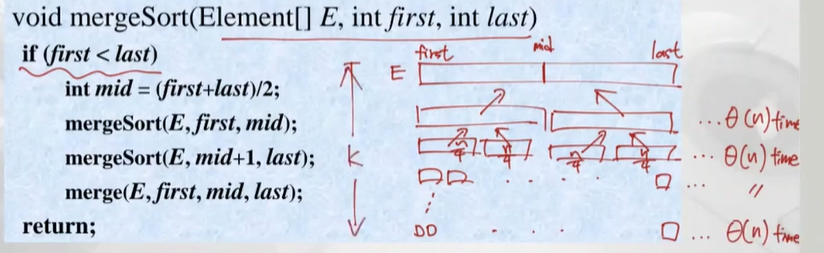 void mergeSort(Element[] E, int first, int last)
if (first < last)
int mid = (first+last)/2;
mergeSort(E, first, mid);
mergeSort(E, mid+1, last);
merge(E, first, mid, last);
return;
first mid last
E
... θ(n) time
K
n/4 n/4 n/4 n/4 ... θ(n) time
... 〃
... θ(n) time